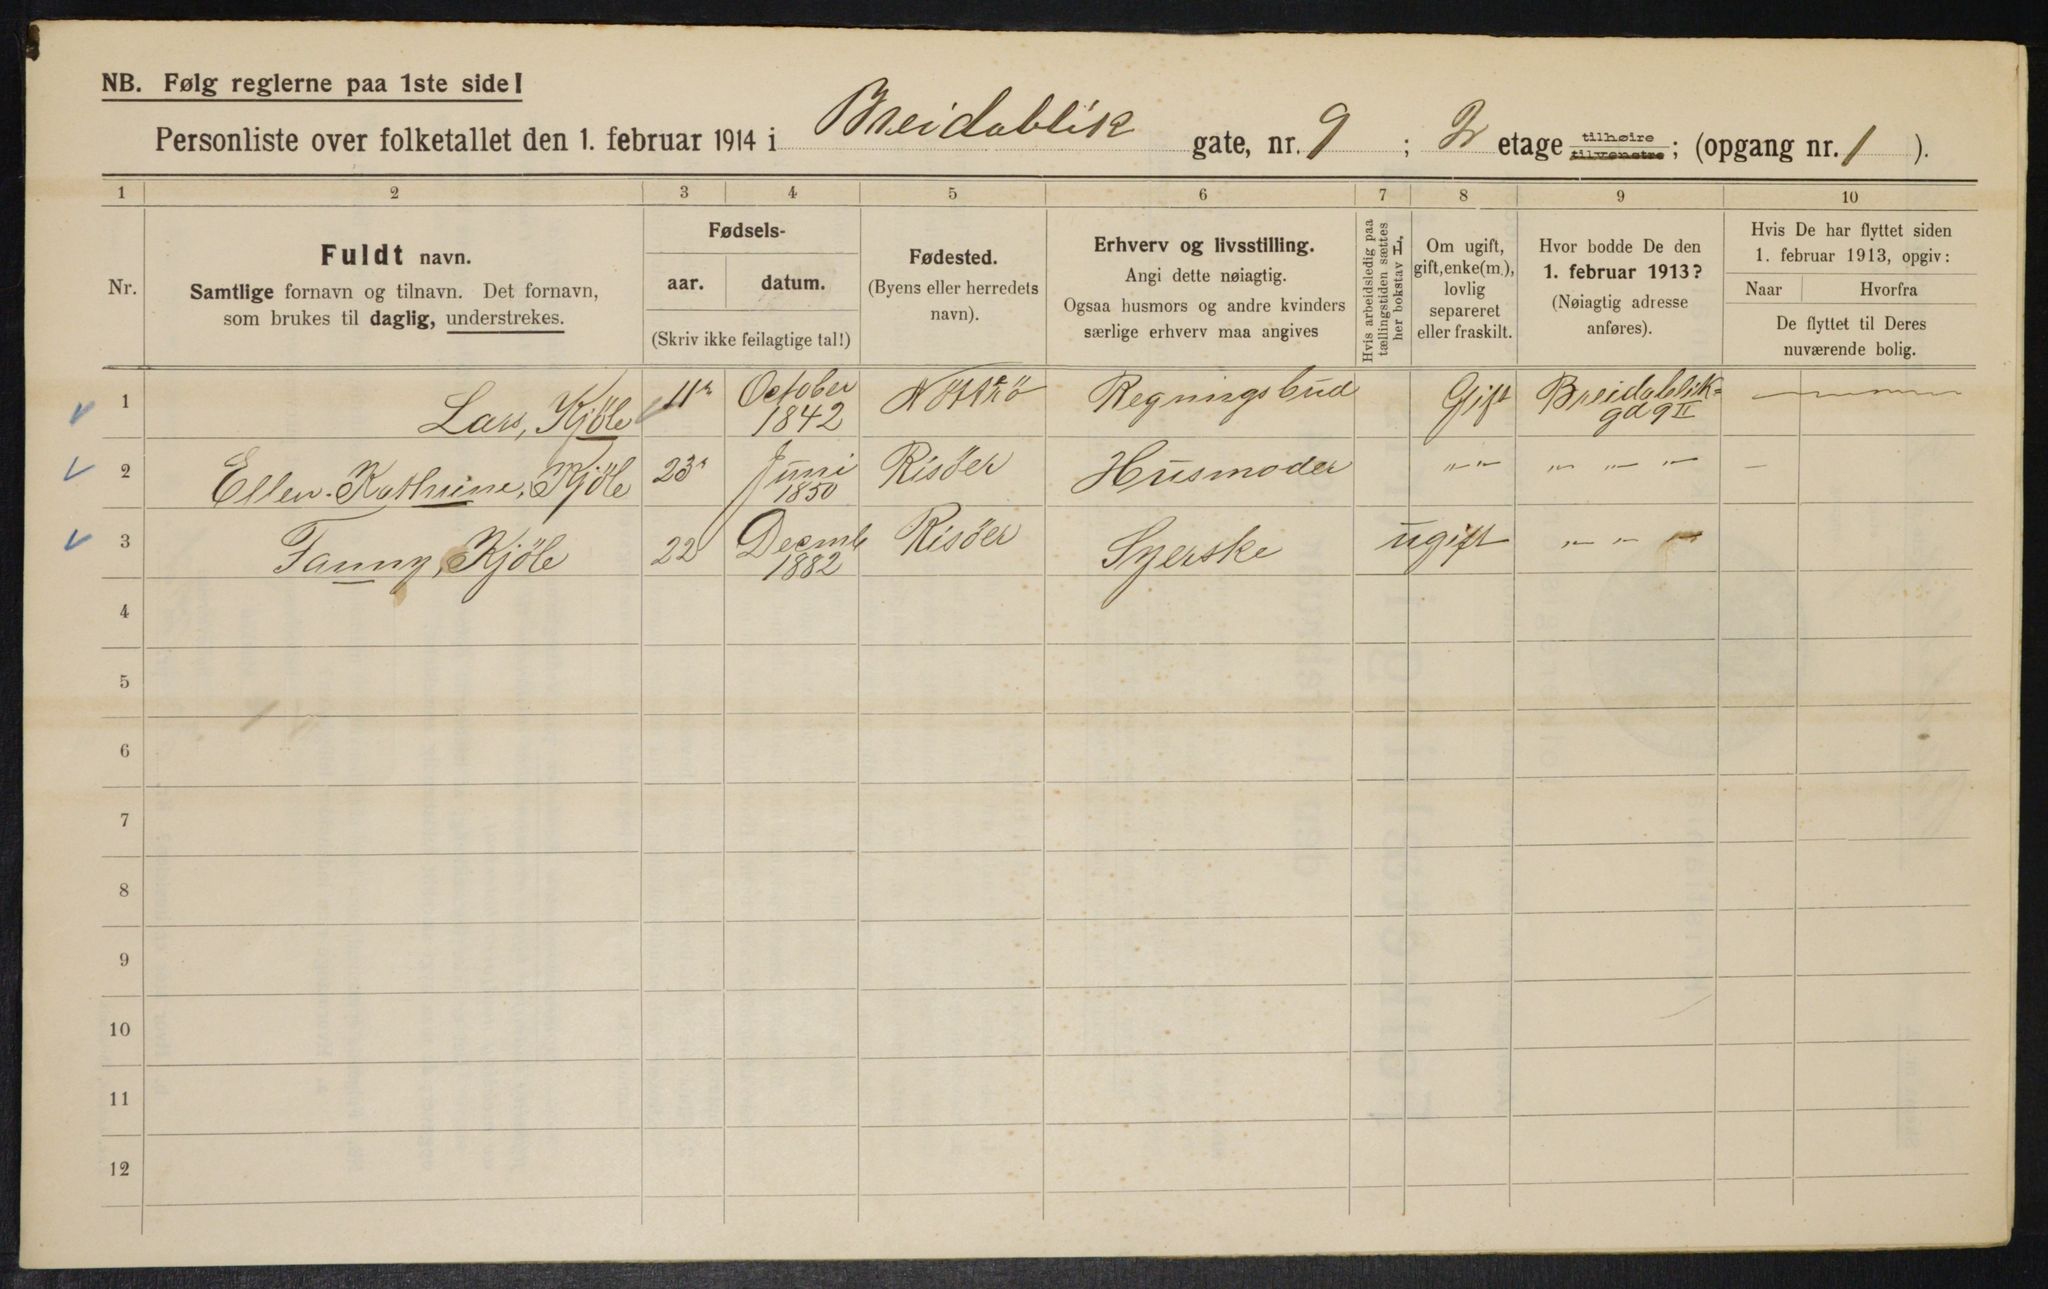 NB. Følg reglerne paa 1ste side!
Personliste over folketallet den 1. februar 1914 i Breidablik gate, nr. 9 ; 2 etage tilhøire tilvenstre; (opgang nr. 1 ).
1 2 3 4 5 6 7 8 9 10
Nr.
Fuldt navn.
Samtlige fornavn og tilnavn. Det fornavn,
som brukes til daglig, understrekes.
Fødsels-
aar. datum.
(Skriv ikke feilagtige tal!)
Fødested.
(Byens eller herredets
navn).
Erhverv og livsstilling.
Angi dette nøiagtig.
Ogsaa husmors og andre kvinders
særlige erhverv maa angives
Hvis arbeidsledig paa
tællingstiden sættes
her bokstav L.
Om ugift,
gift, enke(m.),
lovlig
separeret
eller fraskilt.
Hvor bodde De den
1. februar 1913?
(Nøiagtig adresse
anføres).
Hvis De har flyttet siden
1. februar 1913, opgiv:
Naar Hvorfra
De flyttet til Deres
nuværende bolig.
1 Lars, Kjöle 11 October 1842 Nötterö Regningsbud Gift Breidablik= gd 9 II —
2 Ellen Kathrine, Kjöle 23 Juni 1850 Risöer Husmoder " " " " " —
3 Fanny, Kjöle 22 Decmb 1882 Risöer Syerske ugift " " "
4
5
6
7
8
9
10
11
12